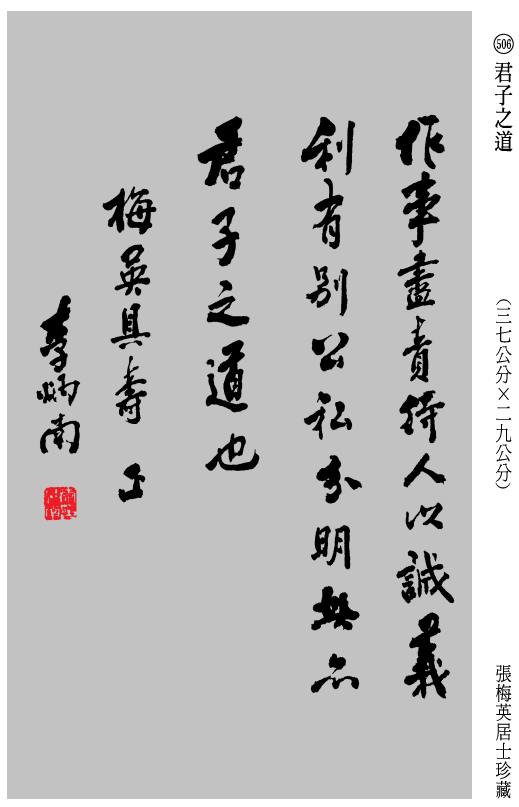 506 君子之道
（三七公分×二九公分）
張梅英居士珍藏
作事盡責待人以誠義
利有別公私分明無
君子之道也
梅英具壽 正
李炳南